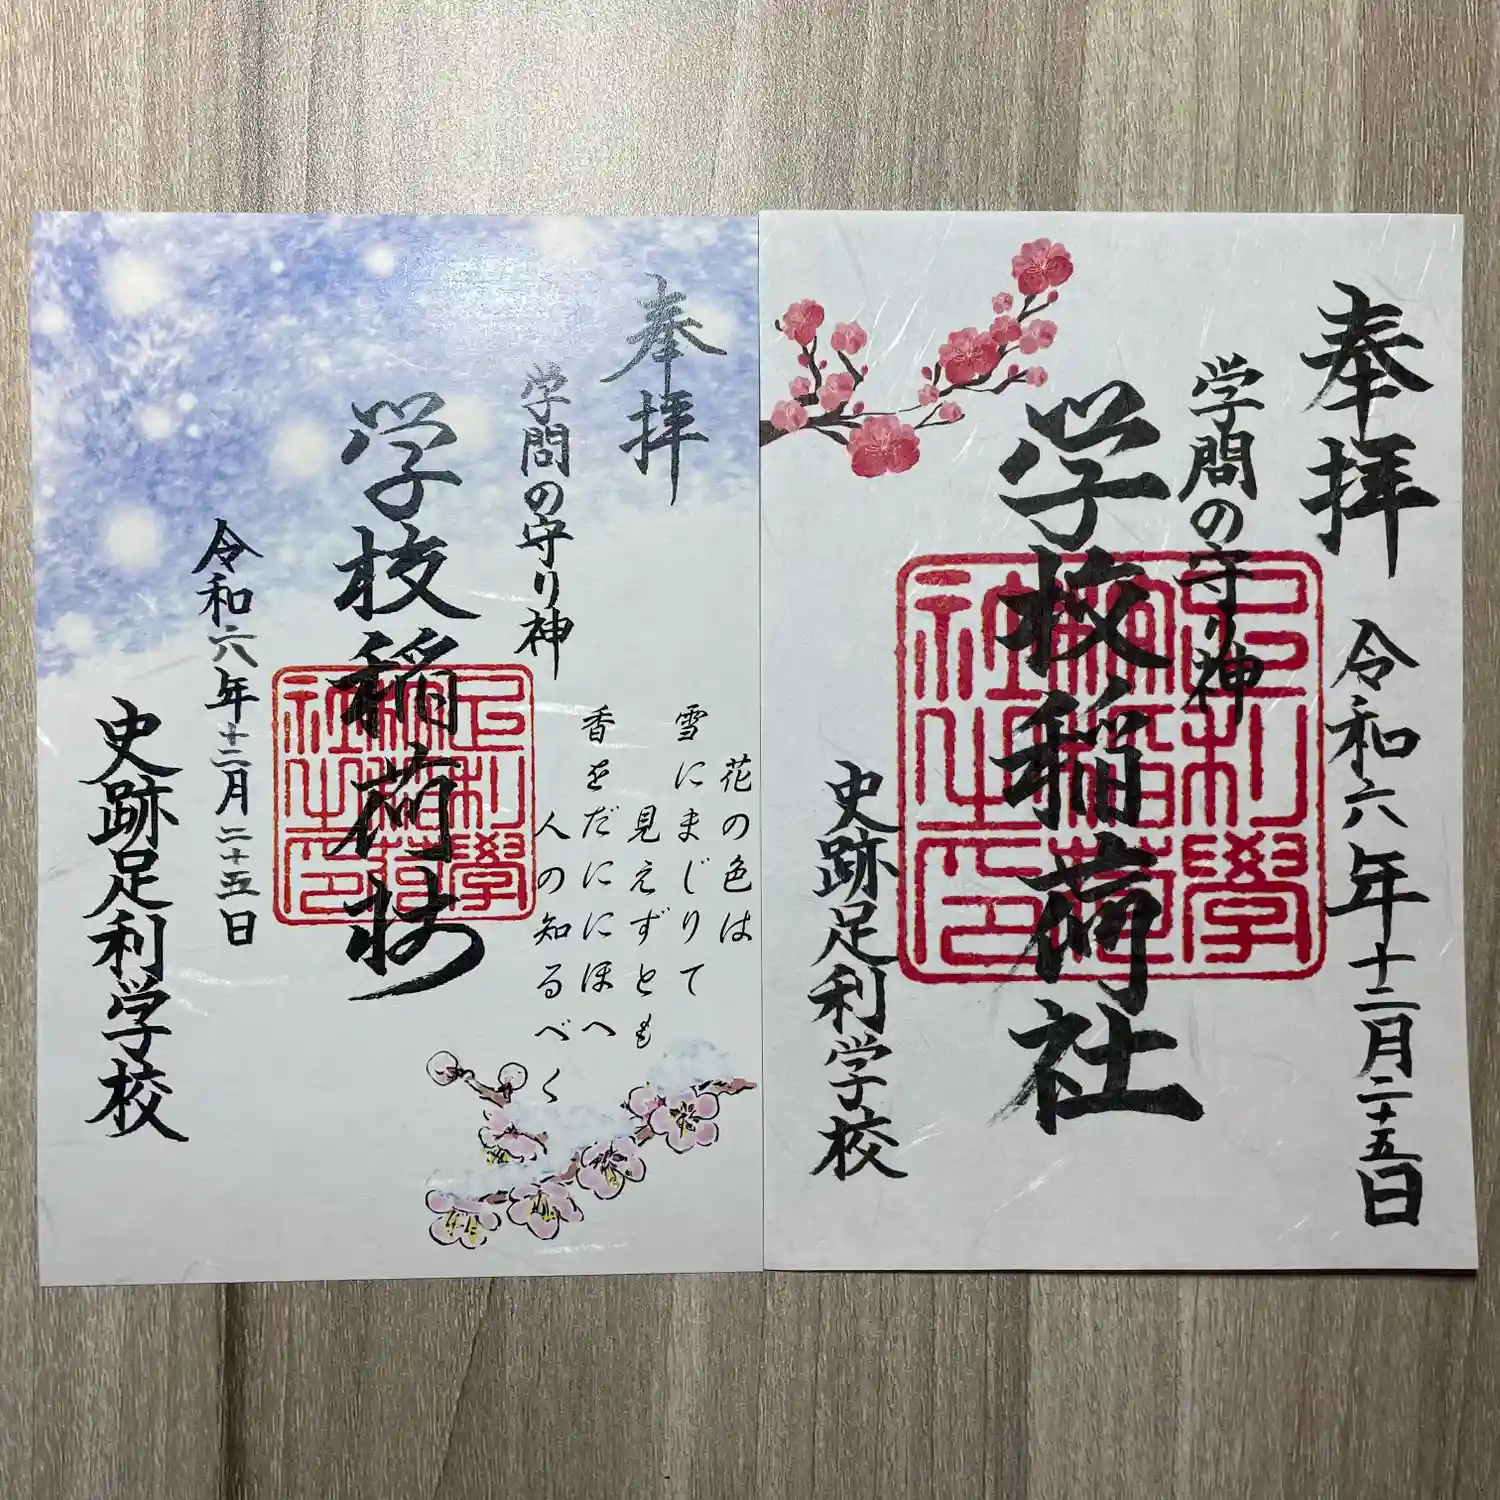 奉拝
学問の守り神
学校稲荷社
令和六年十二月二十五日
史跡足利学校
花の色は
雪にまじりて
見えずとも
香をだににほへ
人の知るべく
足利學
校稲荷
社之印
奉拝
令和六年十二月二十五日
学問の守り神
学校稲荷社
史跡足利学校
足利學
校稲荷
社之印